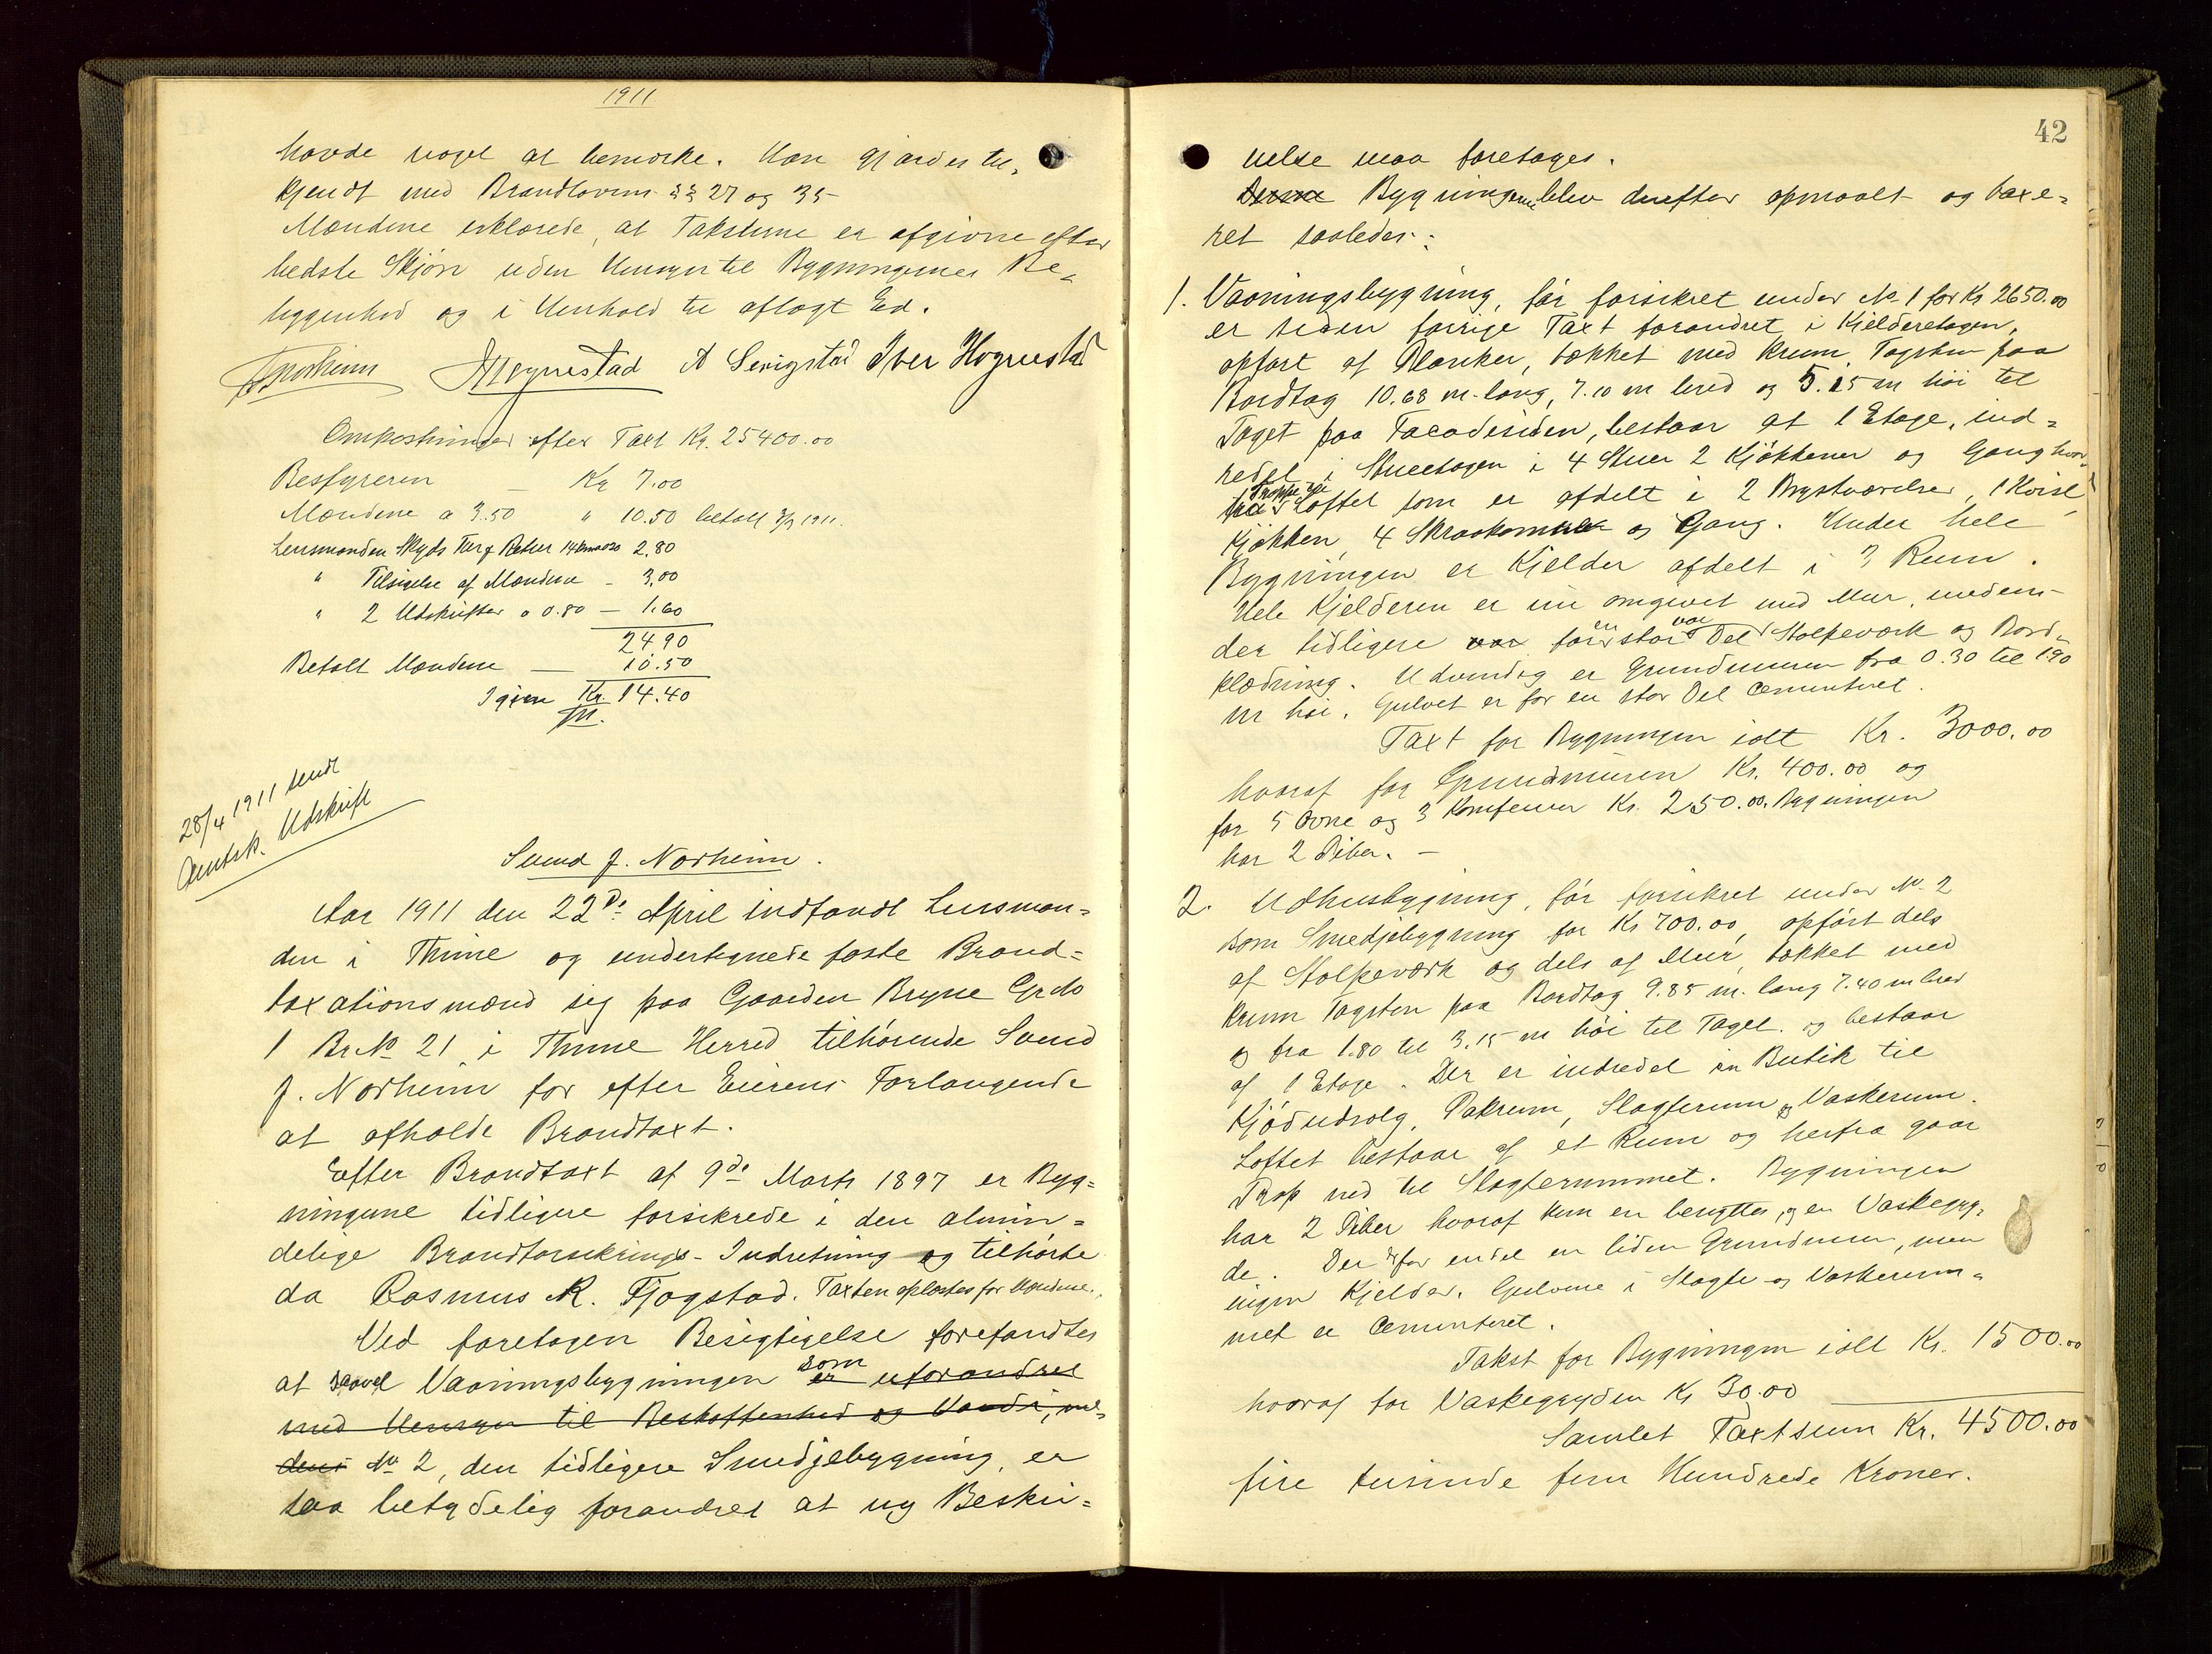 1911
havde noget at bemærke. Han gjordes til¸
kjendt med Brandlovens §§ 27 og 35
Mændene erklærede, at Taksterne er afgivne efter
bedste Skjøn uden Hensyn til Bygningernes Be¸
liggenhed og i Henhold til aflagt Ed.
Norheim A Serigstad Iver Hognestad
Omkostninger efter Taxt Kr. 25400.00
Bestyreren — Kr 7.00
Mændene a 3.50 " 10.50 betalt 3/3 1911.
Lensmanden Skyds Tur & Retur 14 km a 020 2.80
" Tilsigelse af Mændene — 3,00
" 2 Udskrifter a 0.80 — 1.60
24.90
Betalt Mændene — 10.50
Igjen Kr. 14.40
28/4 1911 sendt
Amtsk. Udskrift
Svend J. Norheim.
Aar 1911 den 22de April indfandt Lensman=
den i Thime og undertegnede faste Brand=
taxationsmænd sig paa Gaarden Bryne Grdo
1 Br No 21 i Thime Herred tilhørende Svend
J. Norheim for efter Eierens Forlangende
at afholde Brandtaxt.
Efter Brandtaxt af 9de Marts 1897 er Byg=
ningerne tidligere forsikrede i den almin=
delige Brandforsikrings-Indretning og tilhørte
da Rasmus R. Fjogstad. Taxten oplæstes for Mændene.
Ved foretagen Besigtigelse forefandtes
at saavel Vaaningsbygningen som er uforandret
med Hensyn til Beskaffenhed og Værdi, me¸
dens No 2, den tidligere Smedjebygning, er
saa betydelig forandret at ny Beskri=
42
velse maa foretages.
Denne Bygningerne blev derefter opmaalt og taxe¸
ret saaledes:
1. Vaaningsbygning, før forsikret under No 1 for Kr 2650.00
er siden forrige Taxt forandret i Kjelderetagen,
opført af Planker, tækket med krum Tagsten paa
Bordtag 10.68 m. lang, 7.10 m bred og 5.15 m høi til
Taget paa Facadesiden, bestaar af 1 Etage, ind=
redet i Stueetagen i 4 Stuer 2 Kjøkkener og Gang hvor
fra Trappe til Loftet som er afdelt i 2 Brystværelser, 1 Kvist,
Kjøkken, 4 Skraakammer og Gang. Under hele
Bygningen er Kjelder afdelt i 3 Rum.
Hele Kjelderen er nu omgivet med Mur, medens
der tidligere var for en stor Del var Stolpeværk og Bord¸
klædning. Udvendig er Grundmuren fra 0.30 til 1.90
m høi. Gulvet er for en stor Del cementeret.
Taxt for Bygningen ialt Kr. 3000.00
hvoraf for Grundmuren Kr. 400.00 og
for 5 Ovne og 3 Komfeurer Kr. 250.00. Bygningen
har 2 Piber. —
2. Udhusbygning, før forsikret under No 2
som Smedjebygning for Kr 700.00, opført dels
af Stolpeværk og dels af Mur, tækket med
krum Tagsten paa Bordtag 9.85 m. lang 7.40 m bred
og fra 1.80 til 3.15 m høi til Taget. og bestaar
af 1 Etage. Der er indredet en Butik til
Kjødudsalg, Pakrum, Slagterum og Vaskerum.
Loftet bestaar af et Rum og herfra gaar
Trap ned til Slagterummet. Bygningen
har 2 Piber hvoraf kun en benyttes, og en Vaskegry¸
de. Der er for endel en liden Grundmur, men
ingen Kjelder. Gulvene i Slagte og Vaskerum=
met er cementeret.
Takst for Bygningen ialt Kr. 1500.00
hvoraf for Vaskegryden Kr 30.00
Samlet Taxtsum Kr. 4500.00
fire tusinde fem Hundrede Kroner.